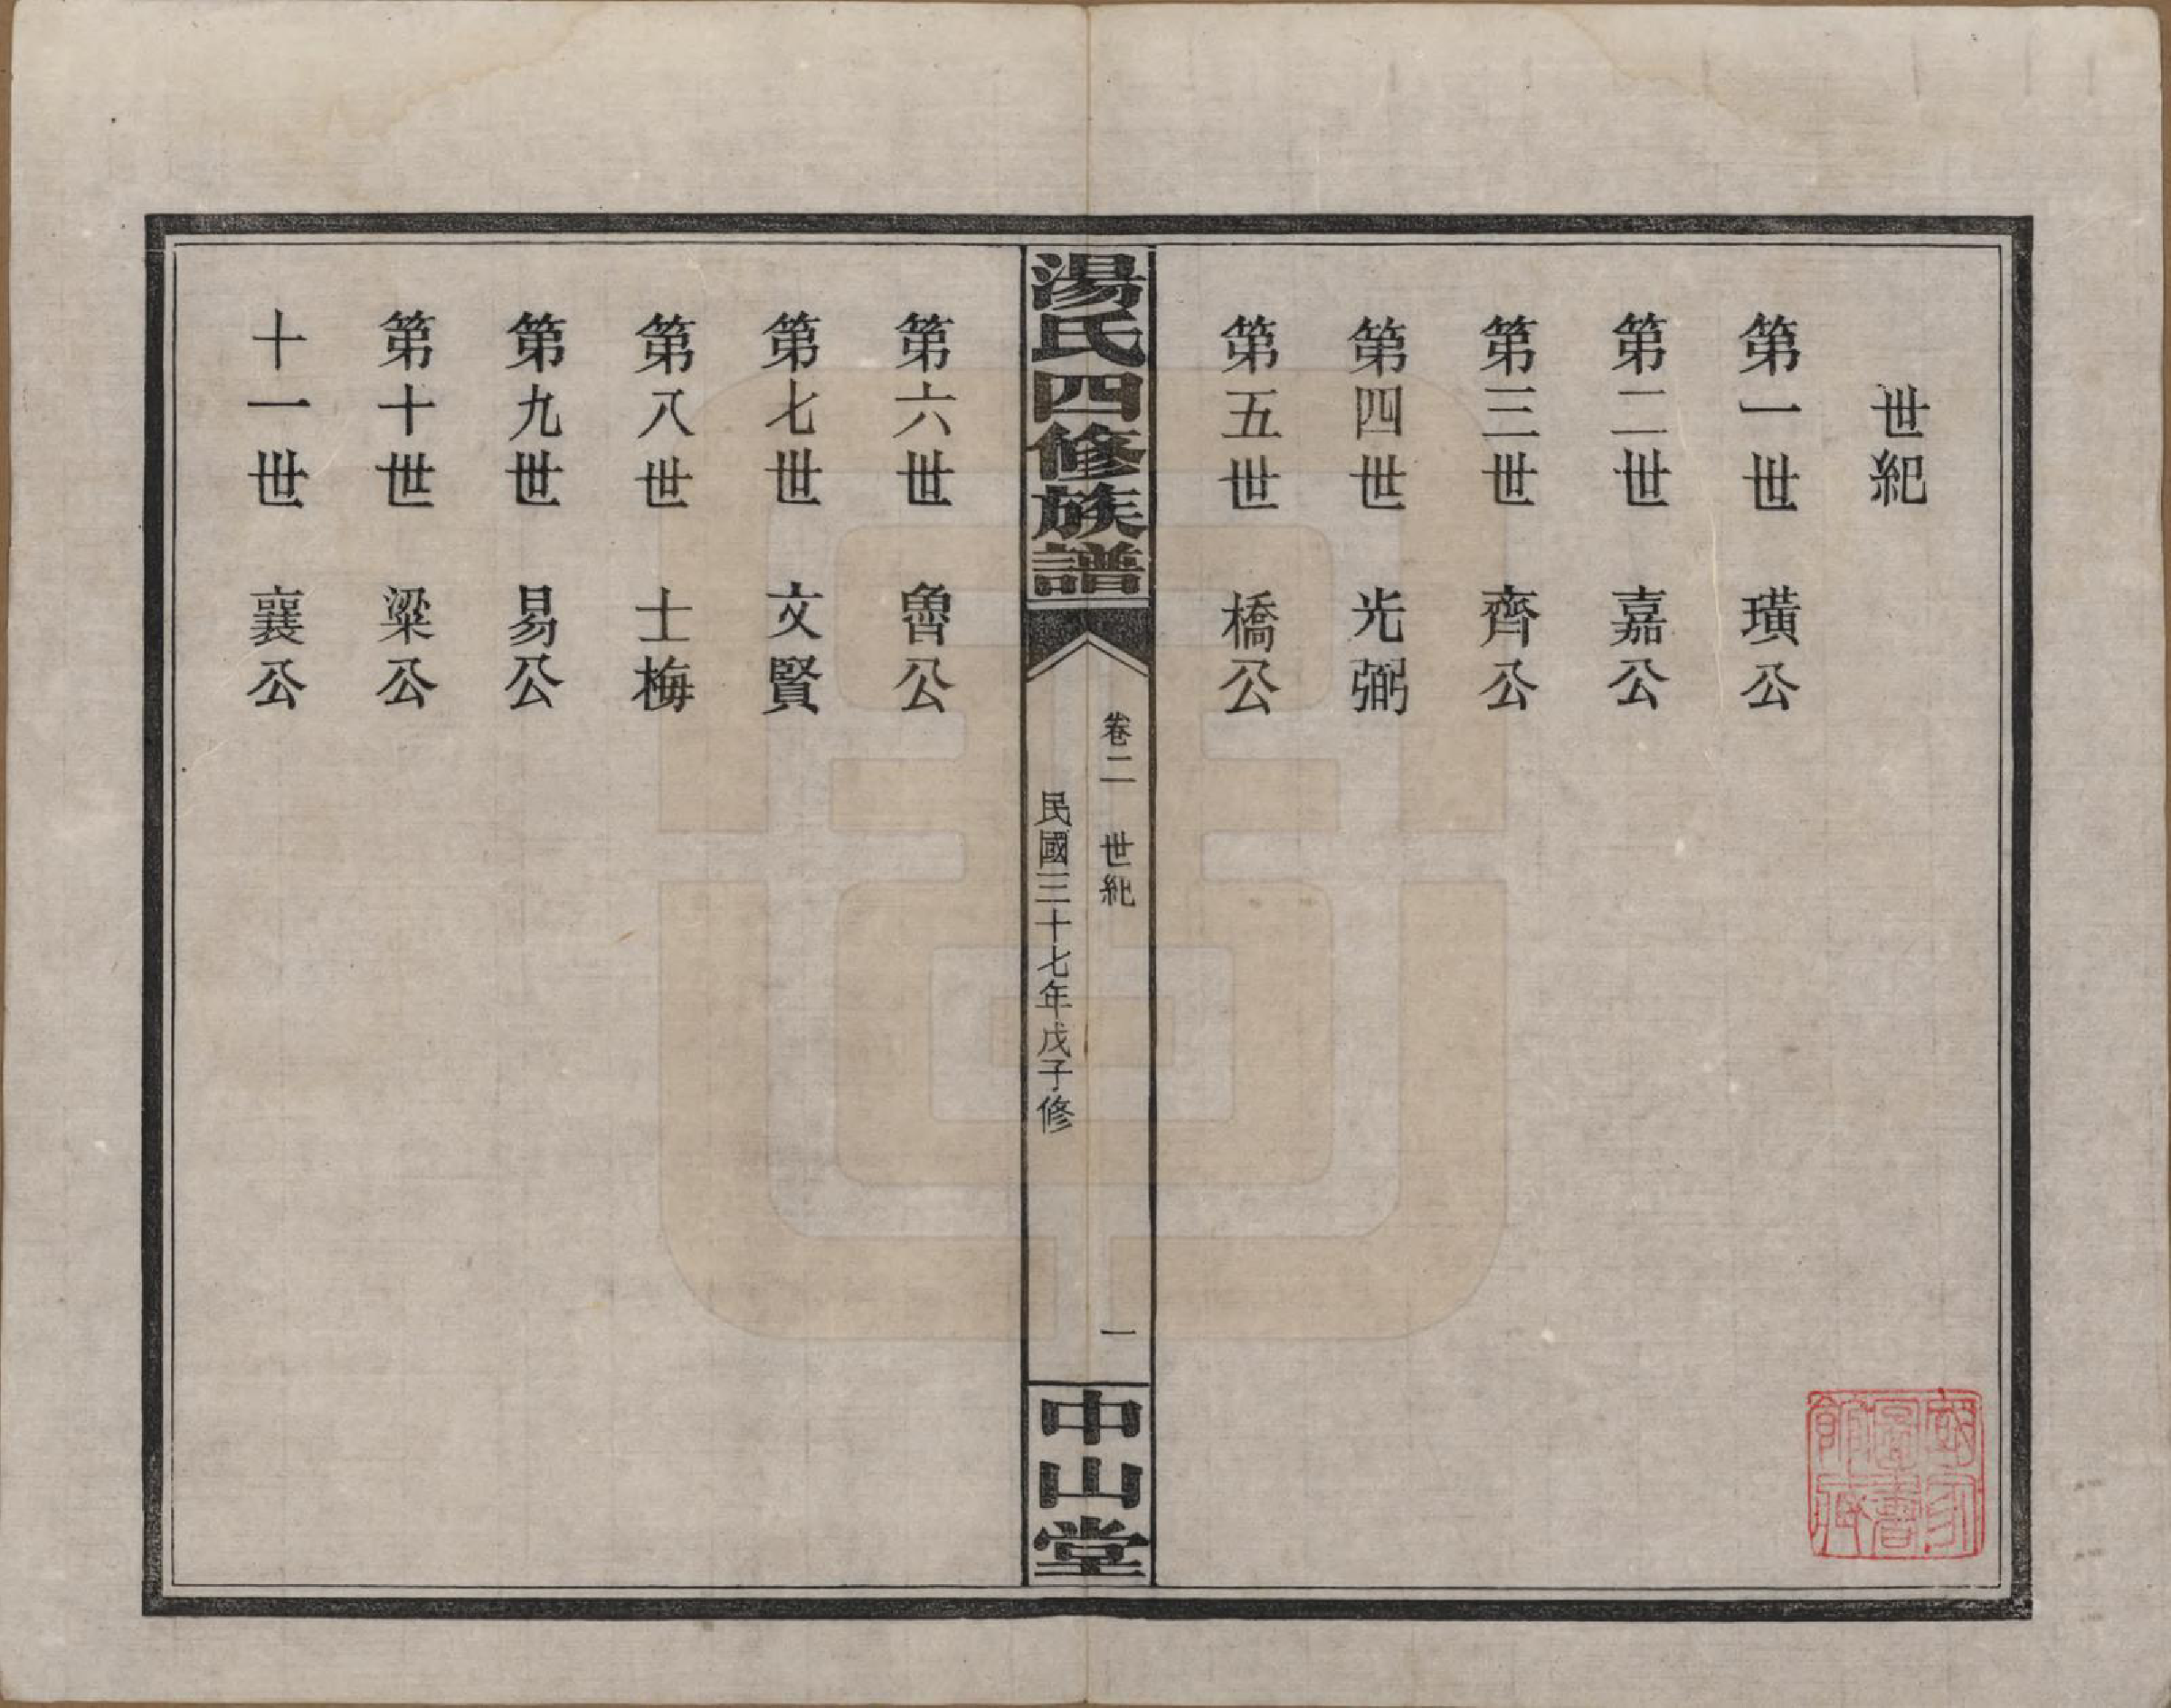 世紀
第一世　璜公
第二世　嘉公
第三世　齊公
第四世　光弼
第五世　橋公
湯氏四修族譜
卷二　世紀
一
民國三十七年戊子修
中山堂
第六世　魯公
第七世　文賢
第八世　士梅
第九世　易公
第十世　梁公
十一世　襄公
國家圖書館藏